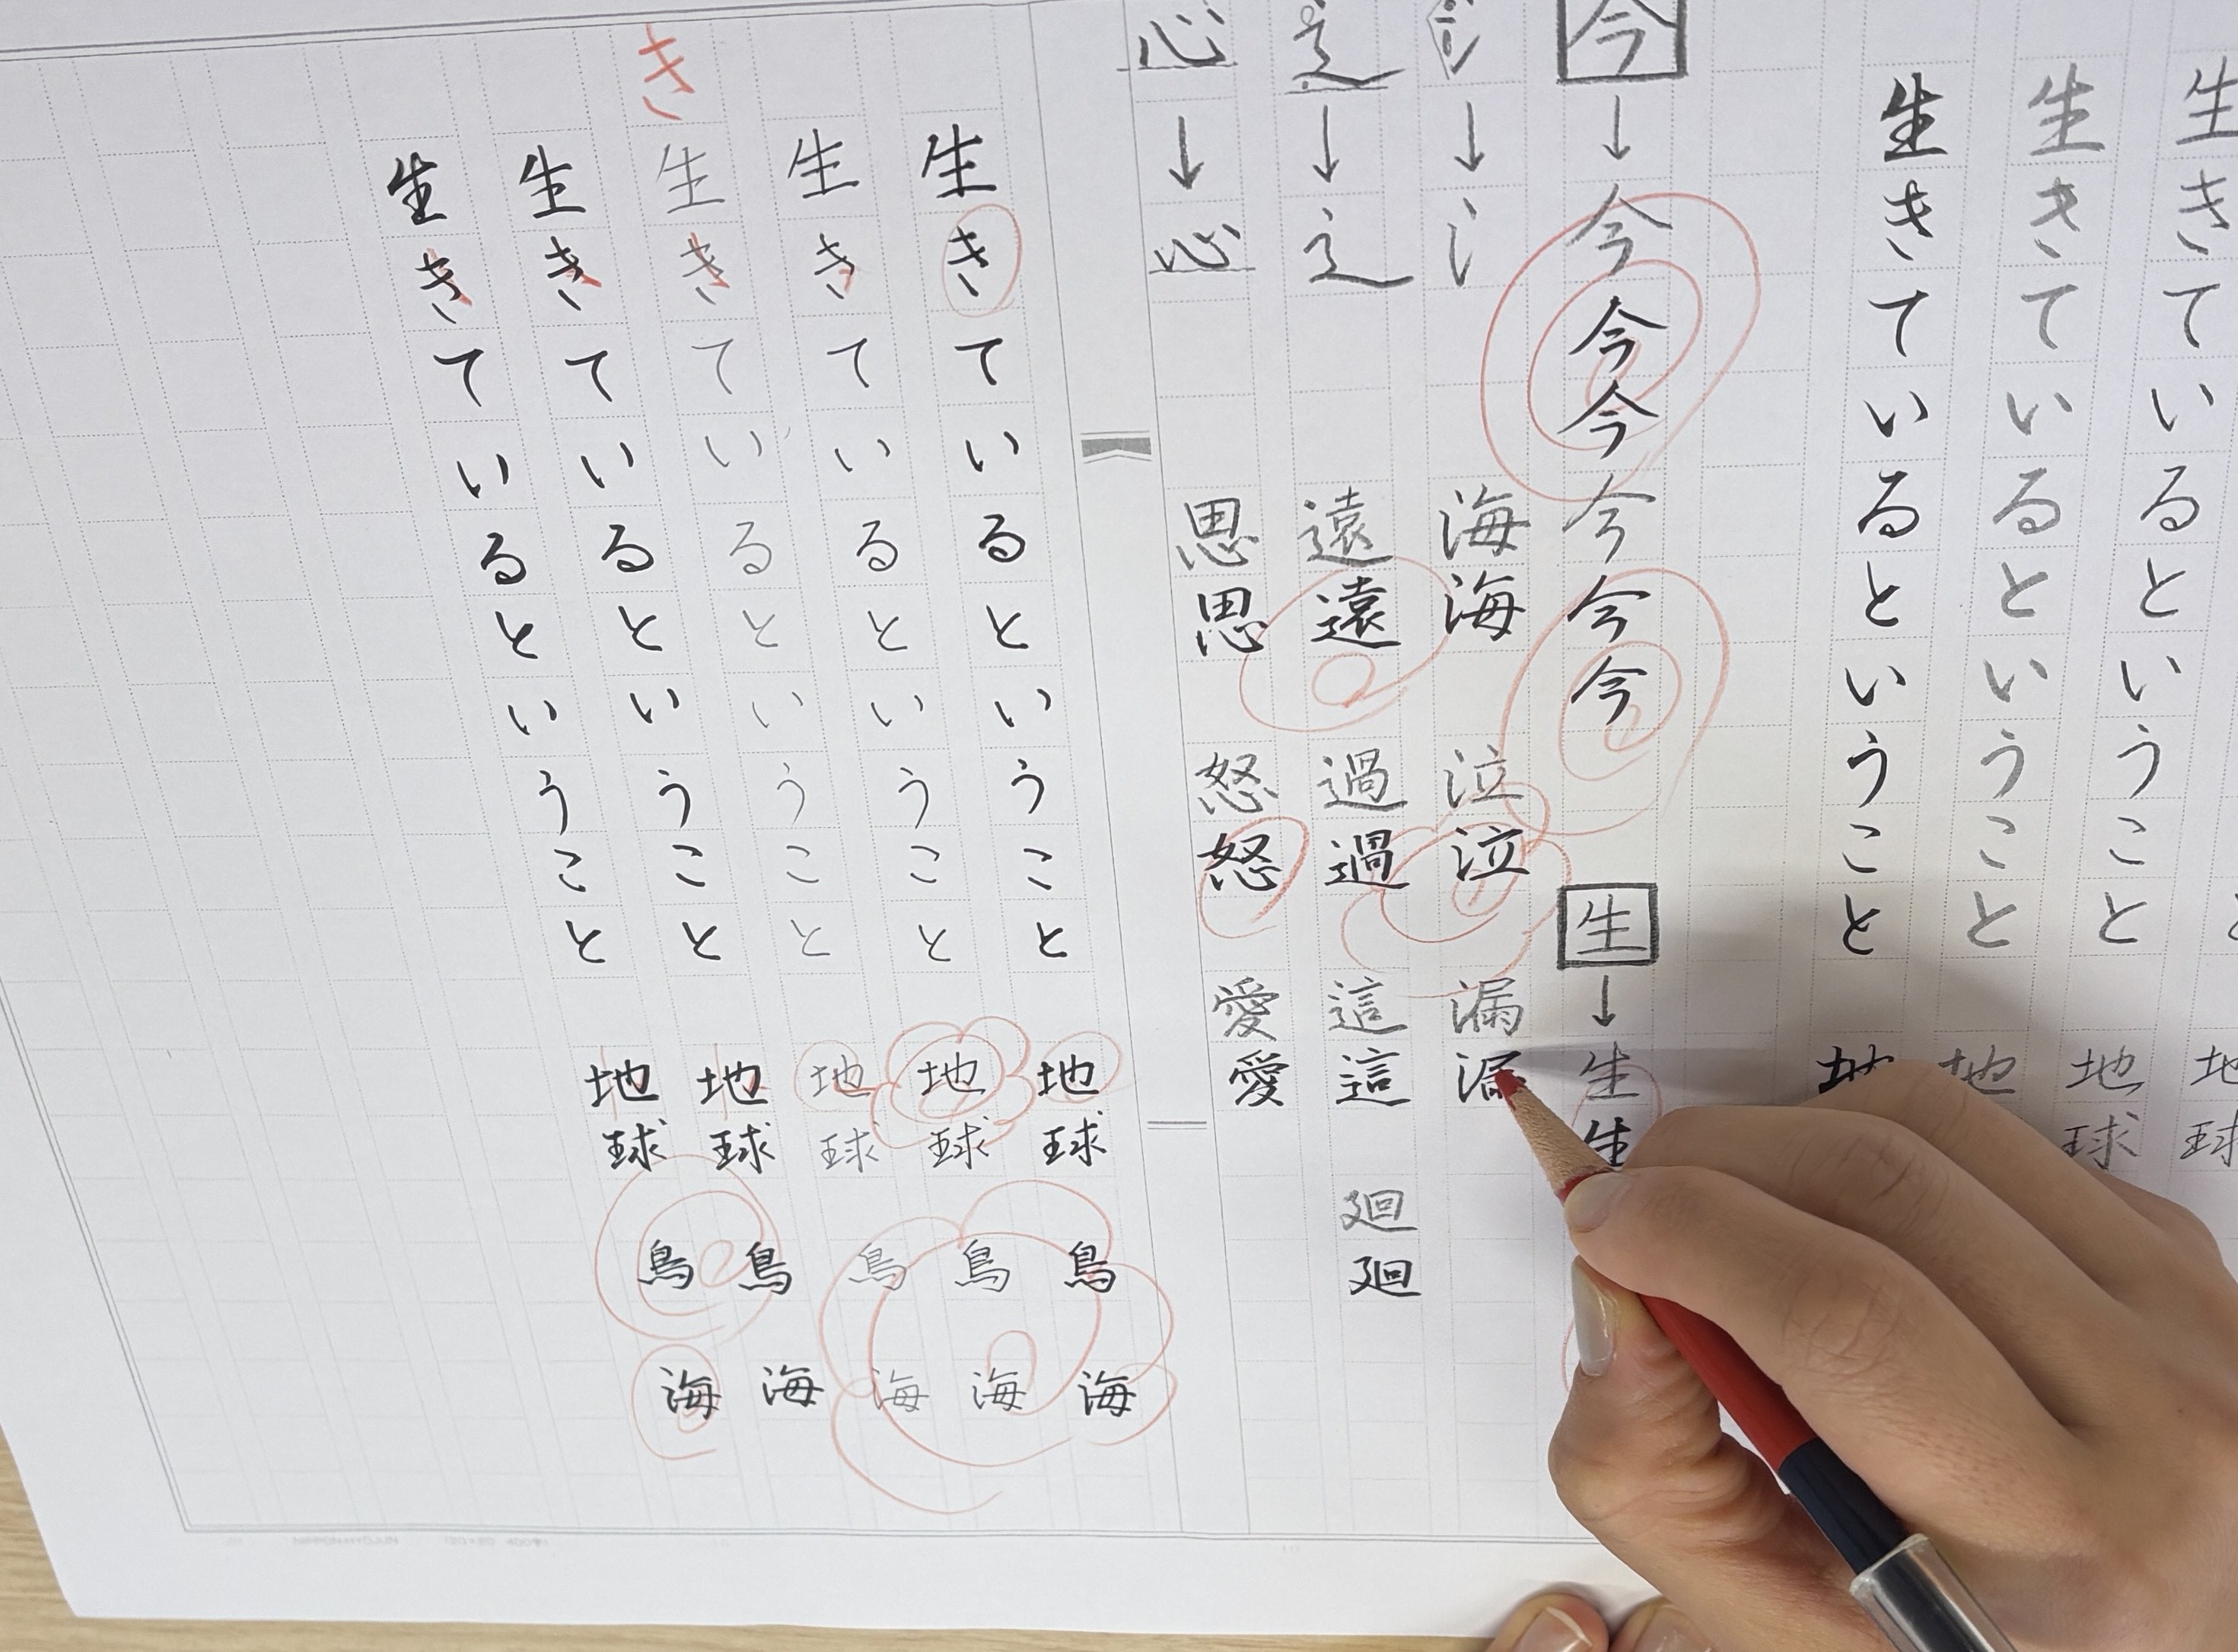 生きて
生きているということ 地
生きているということ 地
今 → 今今今今今今 生 → 生生
→ 海海 泣泣 漏漏
→ 遠遠 過過 這這 廻廻
心 → 心 思思 怒怒 愛愛
生きているということ 地球 鳥 海
生きているということ 地球 鳥 海
き
生きているということ 地球 鳥 海
生きているということ 地球 鳥 海
生きているということ 地球 鳥 海